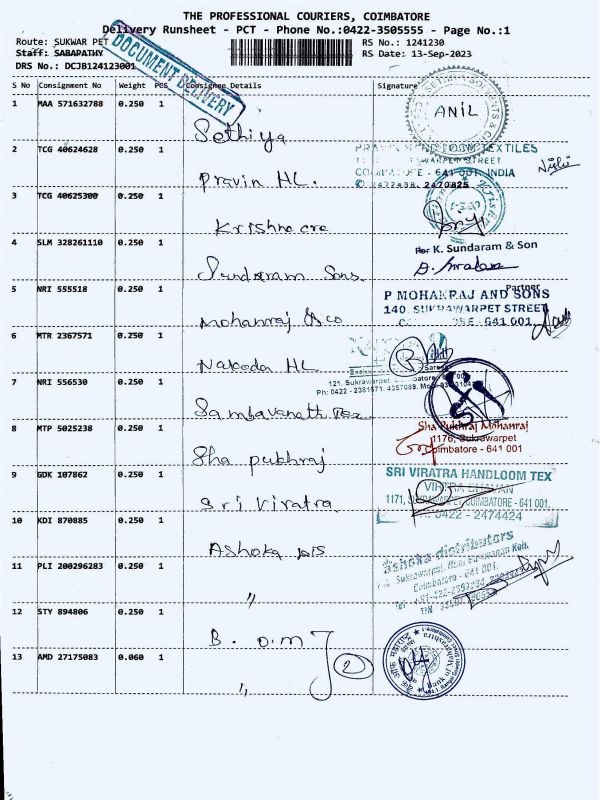 THE PROFESSIONAL COURIERS, COIMBATORE
Delivery Runsheet - PCT - Phone No.:0422-3505555 - Page No.:1
Route: SUKWAR PET
RS No.: 1241230
Staff: SABAPATHY
RS Date: 13-Sep-2023
DRS No.: DCJB124123001
DOCUMENT DELIVERY
S No Consignment No Weight PCS Consignee Details Signature
1 MAA 571632788 0.250 1 Sethiya
ANIL
2 TCG 40624628 0.250 1 Pravin HL.
TEXTILES
STREET
641 001. INDIA
2470825
3 TCG 40625300 0.250 1 Krishna
4 SLM 328261110 0.250 1 Sundaram Sons.
For K. Sundaram & Son
Partner
5 NRI 555518 0.250 1 Mohanraj & co
P MOHANRAJ AND SONS
140, SUKRAWARPET STREET
641 001.
6 MTR 2367571 0.250 1 Nakoda HL
121, Sukrawarpet
7 NRI 556530 0.250 1 Sambavanath Tex
8 MTP 5025238 0.250 1 Sha pukhraj
Sha Pukhraj Mohanraj
1176, Sukrawarpet
Coimbatore - 641 001
9 GDK 107862 0.250 1 Sri Viratra
SRI VIRATRA HANDLOOM TEX
VIRATRA BHAVAN
1171, COIMBATORE - 641 001.
0422 - 2474424
10 KDI 870885 0.250 1 Ashoka
Ashoka distributors
Coimbatore - 641 001.
11 PLI 200296283 0.250 1 "
12 STY 894806 0.250 1 B. O. M
2
Bank of Maharashtra
13 AMD 27175083 0.060 1 "